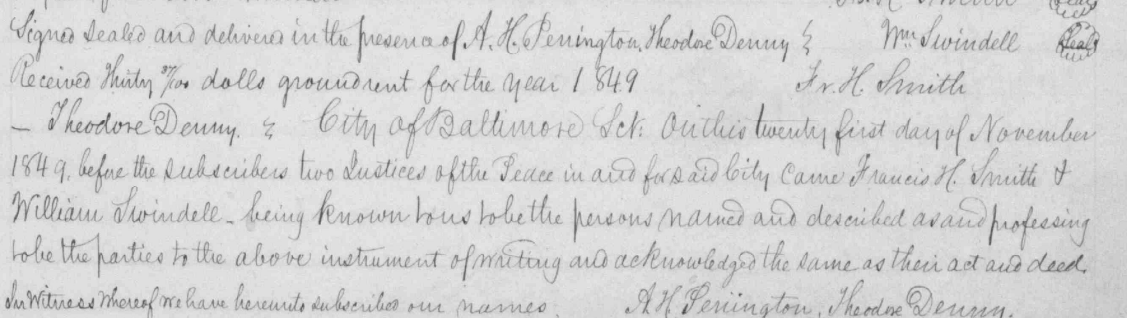 Signed Sealed and delivered in the presence of A. H. Penington, Theodore Denny } Wm Swindell Seal
Received Thirty dolls ground rent for the year 1849 Fr. H. Smith
— Theodore Denny. } City of Baltimore Sct: On this twenty first day of November
1849. before the subscribers two Justices of the Peace in and for said City Came Francis H. Smith &
William Swindell – being known to us to be the persons named and described as and professing
to be the parties to the above instrument of writing and acknowledged the same as their act and deed.
In Witness whereof we have hereunto subscribed our names. A H Penington, Theodore Denny.